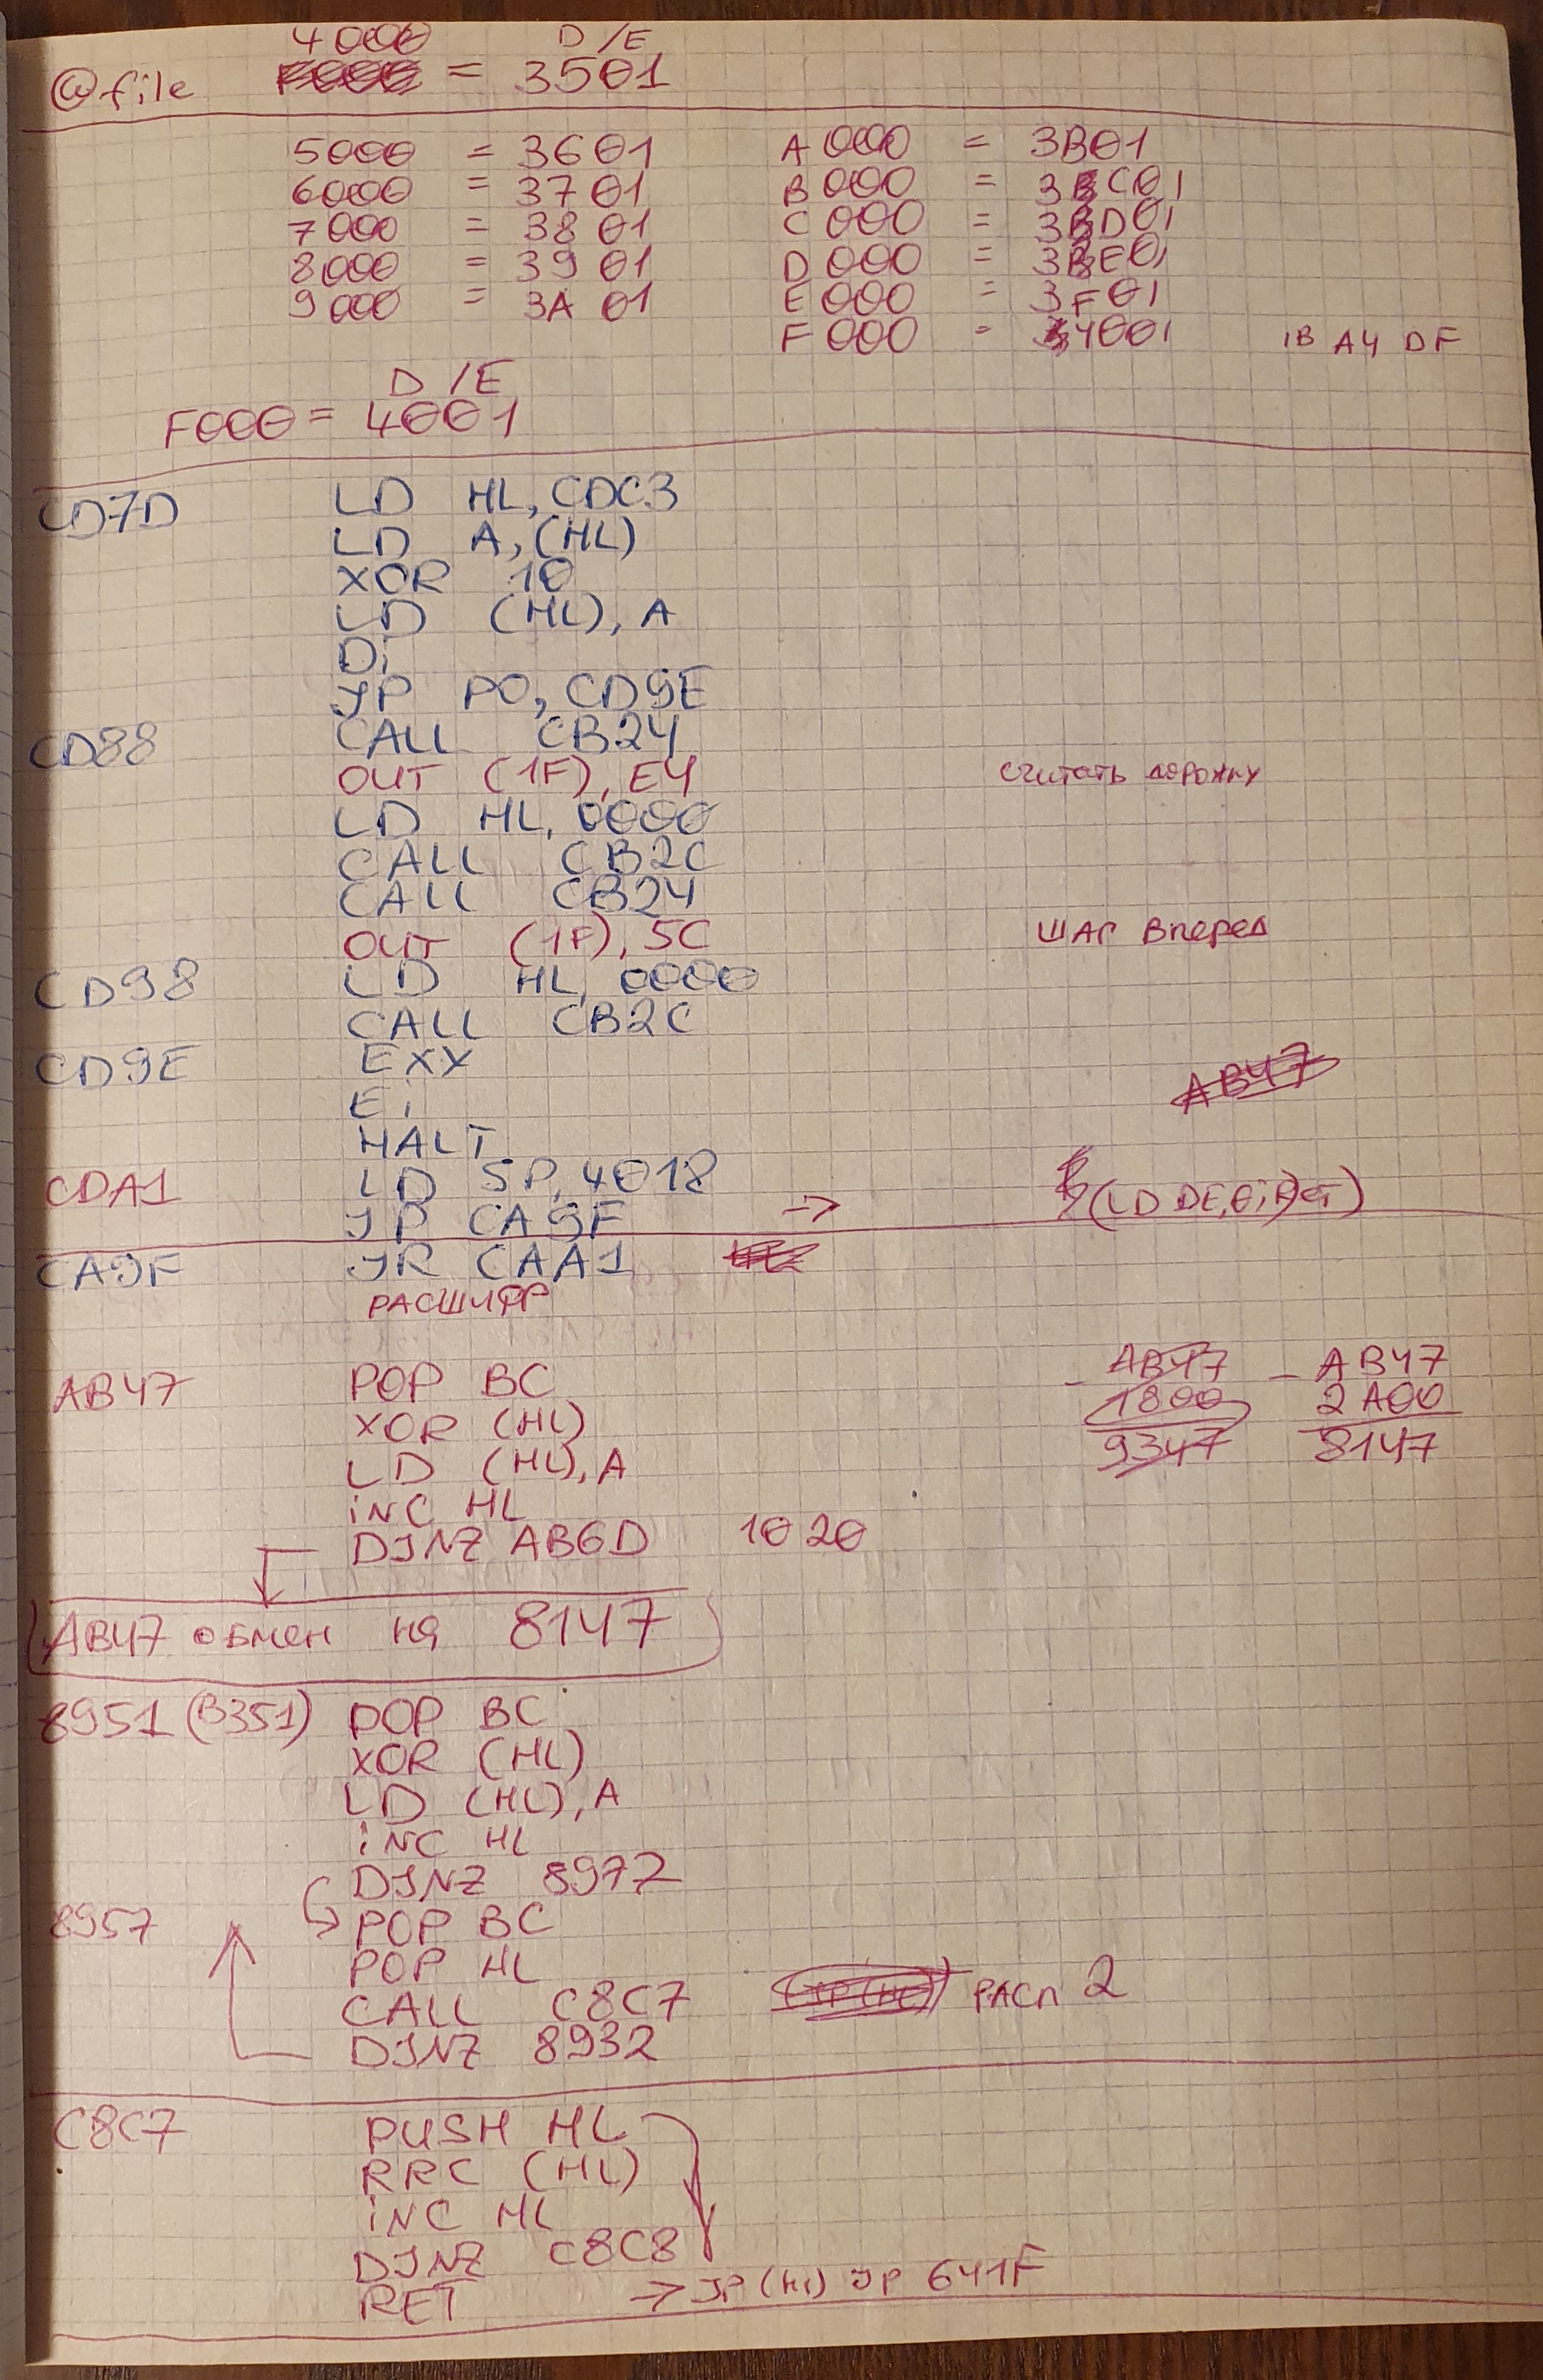 4000 D/E
@file = 3501
5000 = 3601 A000 = 3B01
6000 = 3701 B000 = 3C01
7000 = 3801 C000 = 3D01
8000 = 3901 D000 = 3E01
9000 = 3A01 E000 = 3F01
F000 = 4001 1B A4 DF
D/E
F000 = 4001
CD7D LD HL, CDC3
LD A,(HL)
XOR 10
LD (HL), A
Di
JP PO, CD9E
CD88 CALL CB24
OUT (1F), E4 считать дорожку
LD HL, 0000
CALL CB2C
CALL CB24
OUT (1F), 5C ШАГ Вперед
CD98 LD HL, 0000
CALL CB2C
CD9E EXX
Ei
HALT
AB47
CDA1 LD SP, 4018
JP CA9F →
CA9F JR CAA1
РАСШИФР
AB47 POP BC
XOR (HL)
LD (HL), A
iNC HL
DJNZ AB6D 10 20
- AB47 - AB47
1800 2A00
9347 8147
AB47 обмен на 8147
8951 (B351) POP BC
XOR (HL)
LD (HL), A
iNC HL
DJNZ 8972
8957 POP BC
POP HL
CALL C8C7 РАСП 2
DJNZ 8932
C8C7 PUSH HL
RRC (HL)
iNC HL
DJNZ C8C8
RET → JP (HL) JP 641F